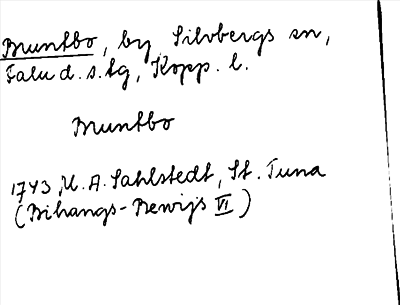 Bruntbo, by Silvbergs sn,
Falu d. s. tg, Kopp. l.
Bruntbo
1743 M. A. Sahlstedt, St. Tuna
(Bihangs-Bewijs VI)